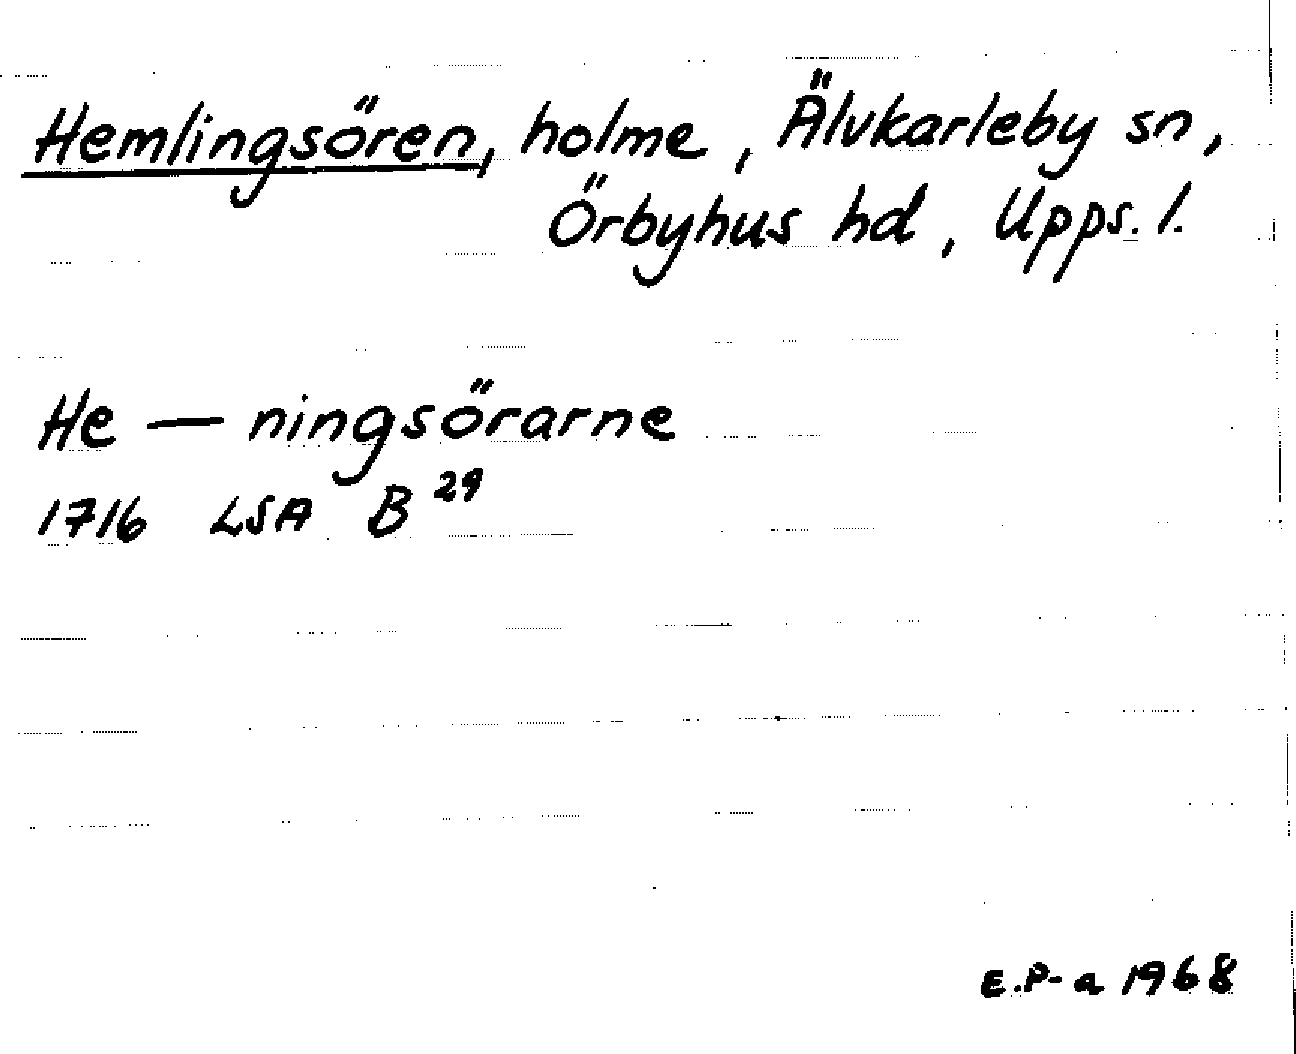 Hemlingsören, holme, Älvkarleby sn,
Örbyhus hd, Upps. l.
He — ningsörarne
1716 LSA B 29
E.P-a 1968